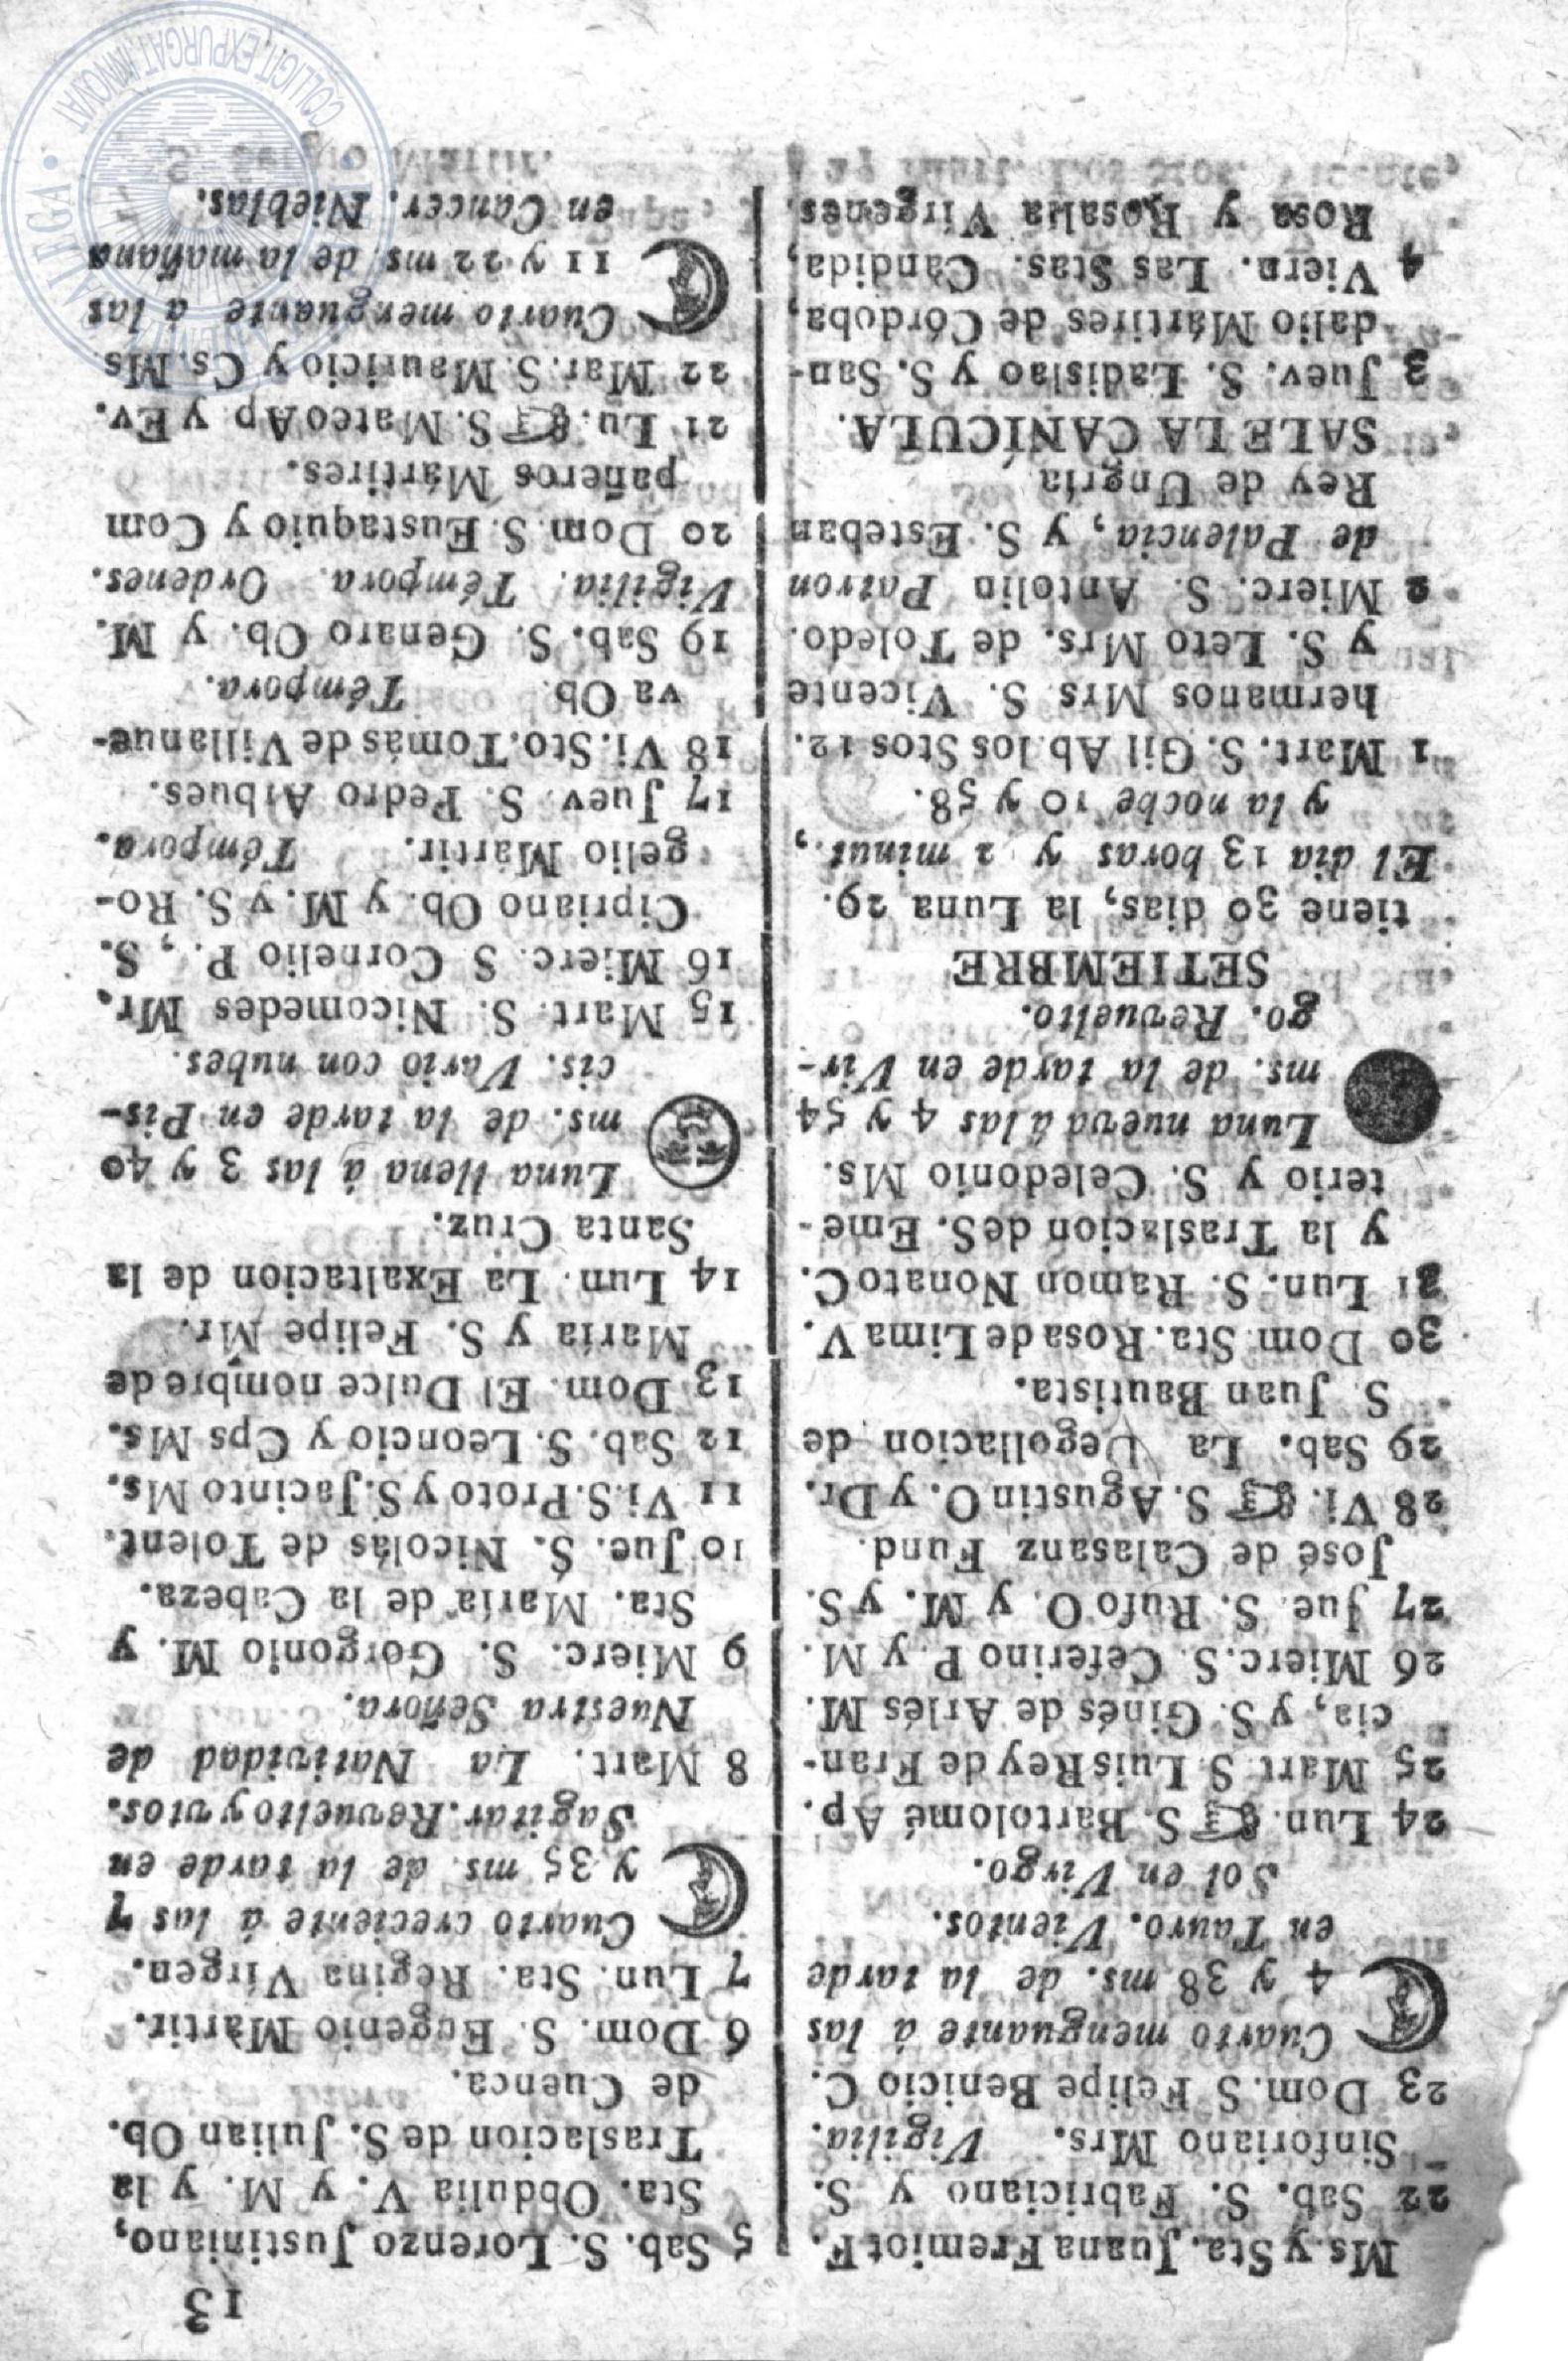 13
Ms. y Sta. Juana Fremiot F.
22 Sab. S. Fabriciano y S.
Sinforiano Mrs. Vigilia.
23 Dom. S Felipe Benicio C.
Cuarto menguante á las
4 y 38 ms. de la tarde
en Tauro. Vientos.
Sol en Virgo.
24 Lun. S. Bartolomé Ap.
25 Mart. S. Luis Rey de Fran-
cia, y S. Ginés de Arlés M.
26 Mierc. S. Ceferino P. y M.
27 Jue. S. Rufo O. y M. y S.
José de Calasanz Fund.
28 Vi. S. Agustin O. y Dr.
29 Sab. La Degollacion de
S. Juan Bautista.
30 Dom. Sta. Rosa de Lima V.
31 Lun. S. Ramon Nonato C.
y la Traslacion de S. Eme-
terio y S. Celedonio Ms.
Luna nueva á las 4 y 54
ms. de la tarde en Vir-
go. Revuelto.
SETIEMBRE
tiene 30 dias, la Luna 29.
El dia 13 horas y 2 minut.,
y la noche 10 y 58.
1 Mart. S. Gil Ab. los Stos 12.
hermanos Mrs S. Vicente
y S. Leto Mrs. de Toledo.
2 Mierc. S. Antolin Patron
de Palencia, y S. Esteban
Rey de Ungría
SALE LA CANÍCULA.
3 Juev. S. Ladislao y S. San-
dalio Mártires de Córdoba,
4 Viern. Las Stas. Cándida,
Rosa y Rosalia Vírgenes
5 Sab. S. Lorenzo Justiniano,
Sta. Obdulia V. y M. y la
Traslacion de S. Julian Ob.
de Cuenca.
6 Dom. S. Eugenio Mártir.
7 Lun. Sta. Regina Vírgen.
Cuarto creciente á las 7
y 35 ms. de la tarde en
Sagitar. Revuelto y vtos.
8 Mart. La Natividad de
Nuestra Señora.
9 Mierc. S. Gorgonio M. y
Sta. María de la Cabeza.
10 Jue. S. Nicolás de Tolent.
11 Vi. S. Proto y S. Jacinto Ms.
12 Sab. S. Leoncio y Cps Ms.
13 Dom. El Dulce nombre de
María y S. Felipe Mr.
14 Lun. La Exaltacion de la
Santa Cruz.
Luna llena á las 3 y 40
ms. de la tarde en Pis-
cis. Vario con nubes.
15 Mart. S. Nicomedes Mr.
16 Mierc. S Cornelio P., S.
Cipriano Ob. y M. y S. Ro-
gelio Mártir. Témpora.
17 Juev. S. Pedro Arbues.
18 Vi. Sto. Tomás de Villanue-
va Ob. Témpora.
19 Sab. S. Genaro Ob. y M.
Vigilia. Témpora. Ordenes.
20 Dom. S. Eustaquio y Com
pañeros Mártires.
21 Lu. S. Mateo Ap y Ev.
22 Mar. S. Mauricio y Cs. Ms
Cuarto menguante á las
11 y 22 ms. de la mañana
en Cancer. Nieblas.
COLLIGIT EXPURGAT INNOVAT